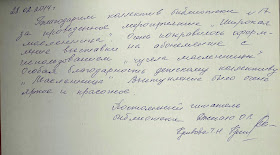 28.02.2014г.
Благодарим коллектив библиотеки №17
за проведенное мероприятие "Широкая
масленица". Очень понравилось оформ-
ление выставки на абонементе с
использованием "чучела масленицы".
Особая благодарность детскому коллективу
"Масленица". Выступление было очень
яркое и красочное.
Постоянный читатель
библиотеки